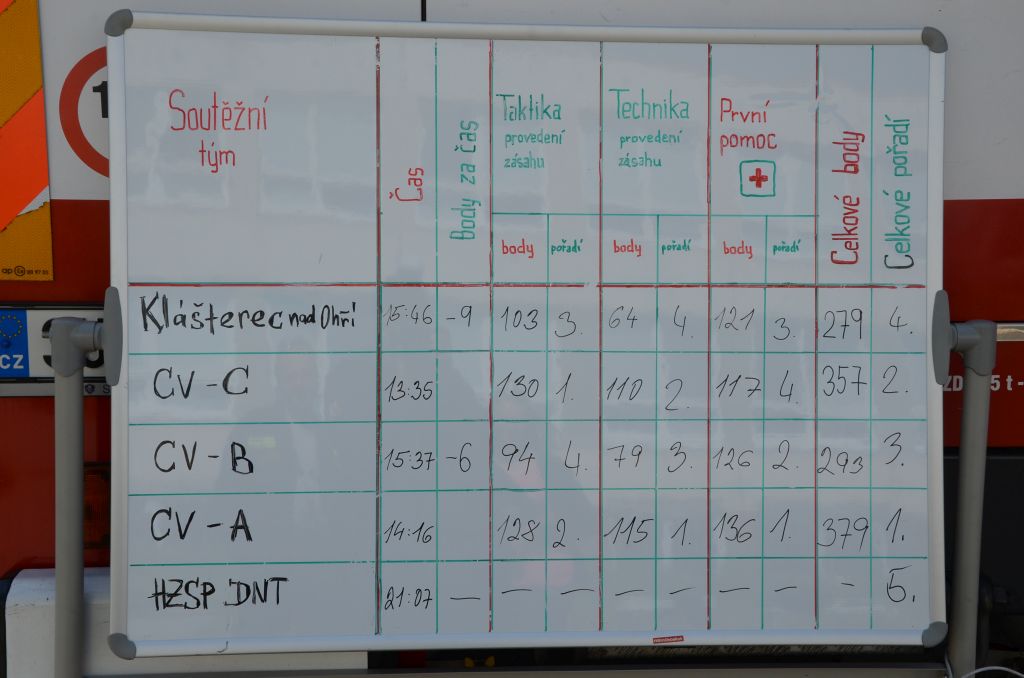 Soutěžní
tým
Čas
Body za čas
Taktika
provedení
zásahu
Technika
provedení
zásahu
První
pomoc
Celkové body
Celkové pořadí
body pořadí body pořadí body pořadí
Klášterec nad Ohří 15:46 -9 103 3. 64 4. 121 3. 279 4.
CV-C 13:35 130 1. 110 2. 117 4. 357 2.
CV-B 15:37 -6 94 4. 79 3. 126 2. 293 3.
CV-A 14:16 128 2. 115 1. 136 1. 379 1.
HZSP DNT 21:07 — — — — — — — - 5.
CZ
5 t